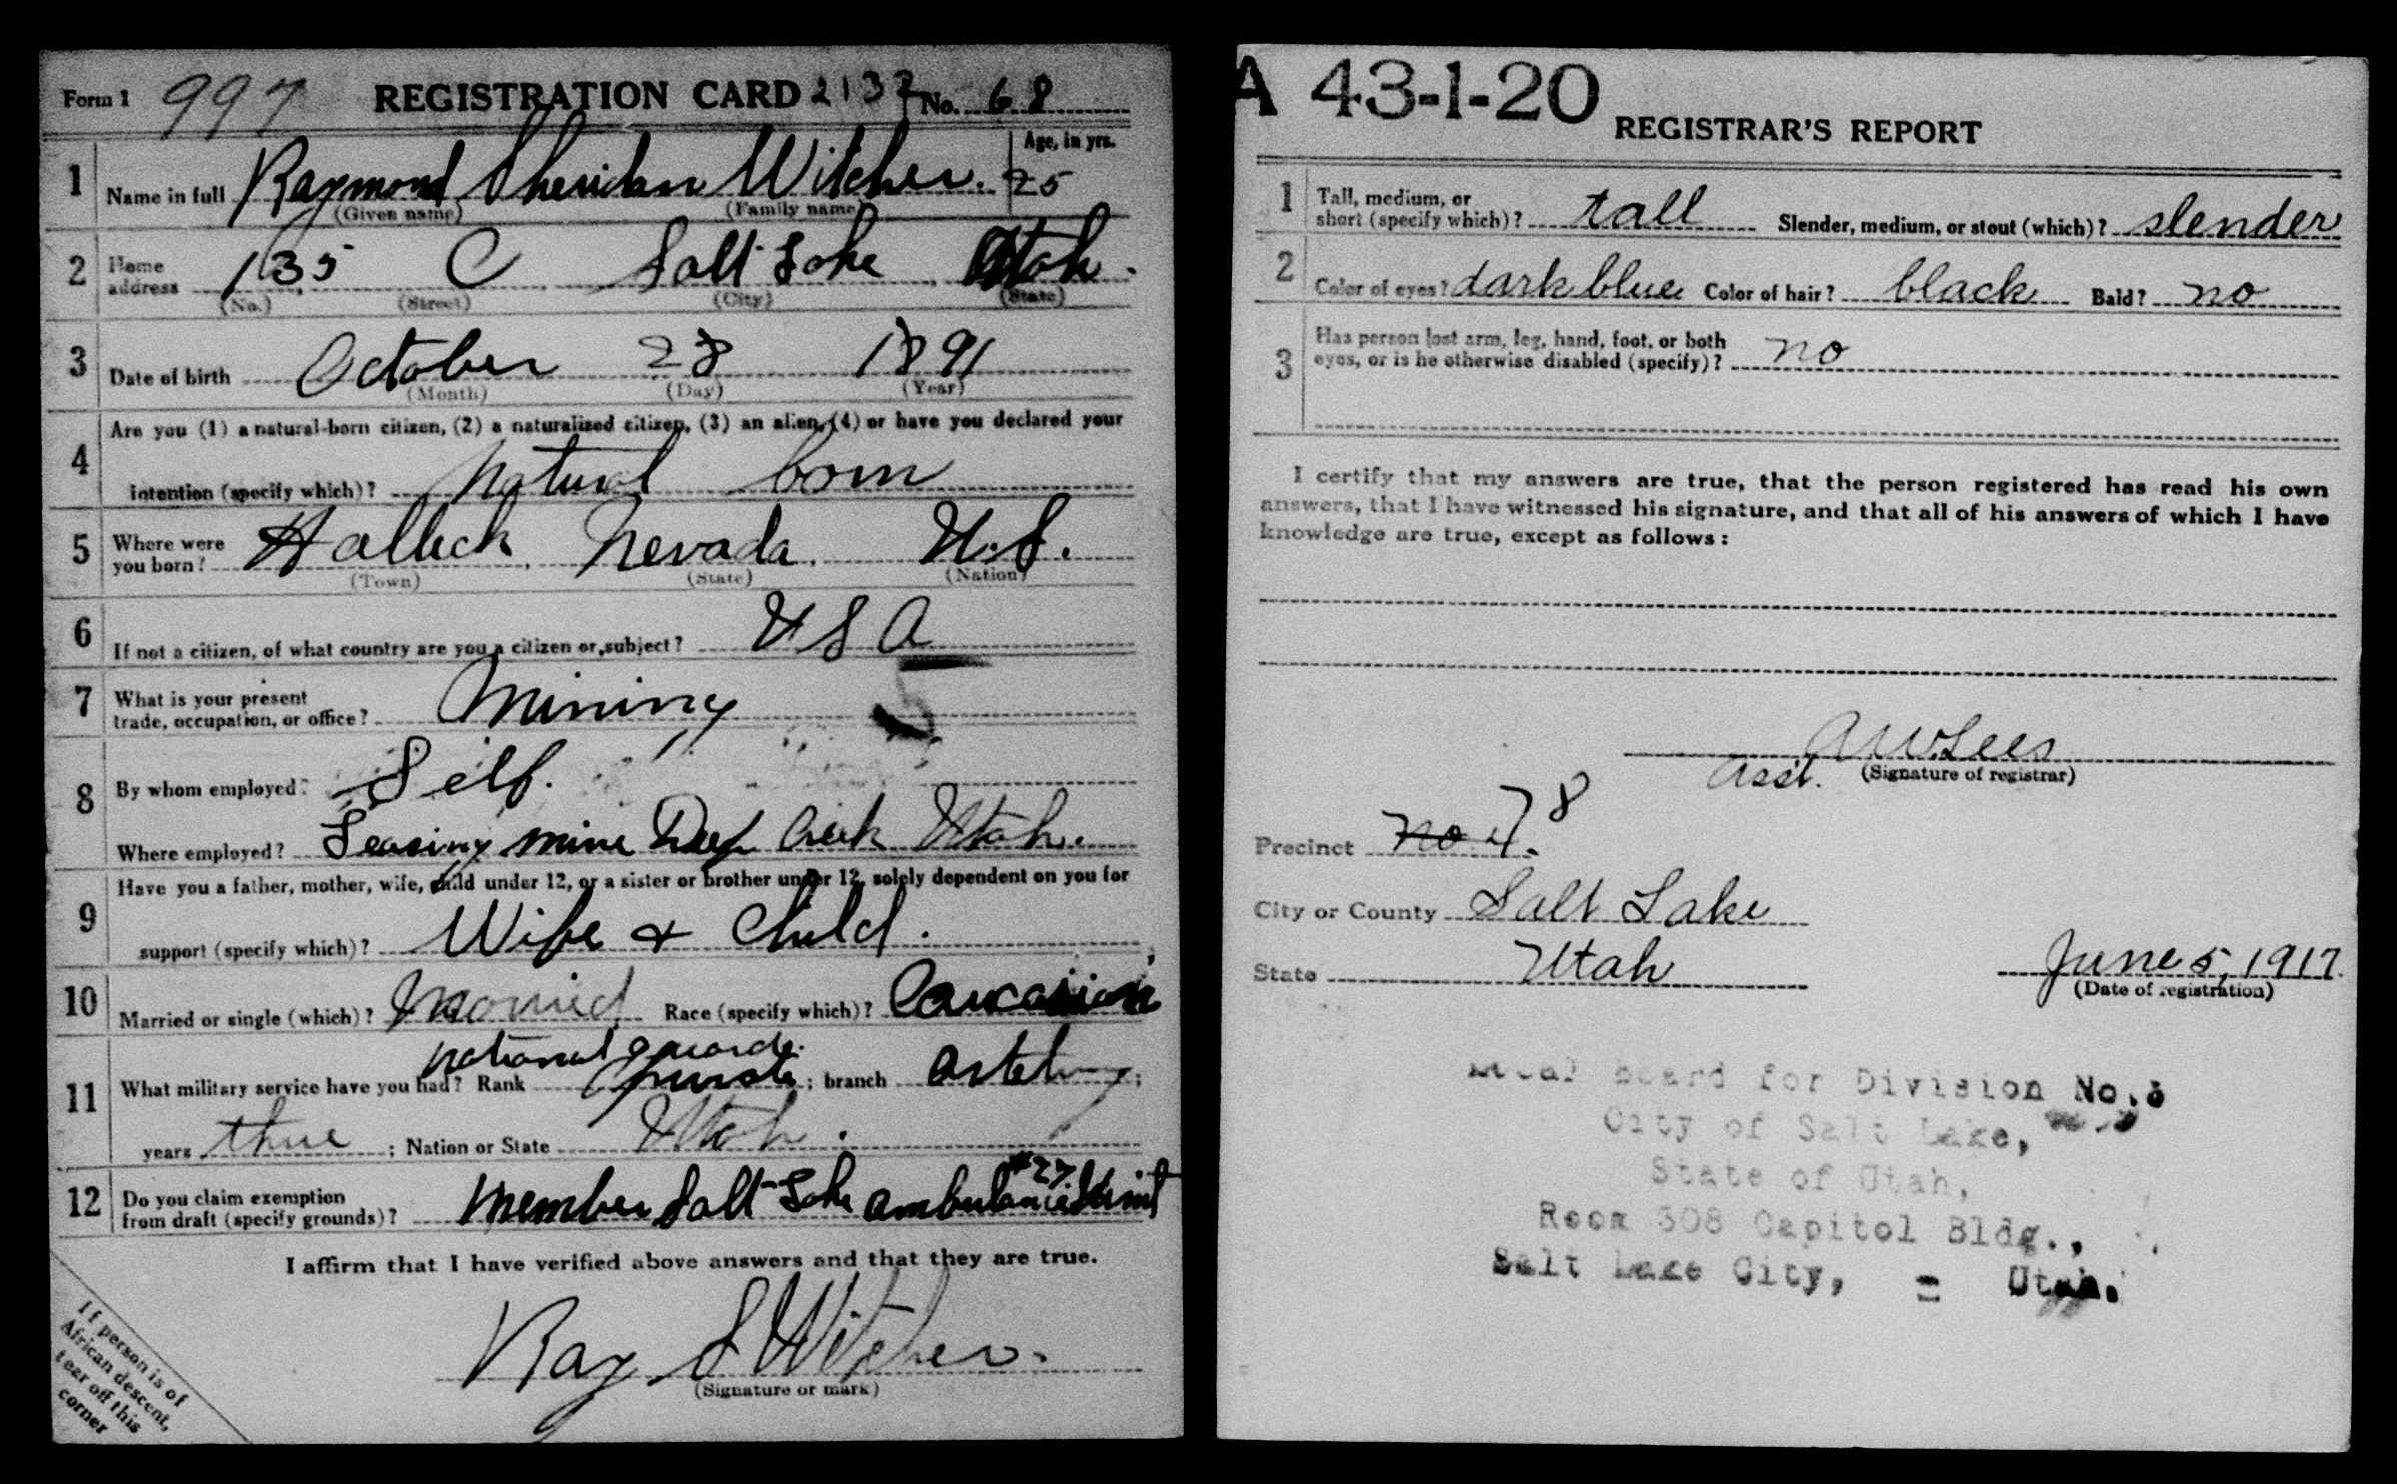 Form 1 997 REGISTRATION CARD 2132 No. 68
1 Name in full Raymond Sheridan Witcher. Age, in yrs. 25
(Given name) (Family name)
2 Home address 135 C Salt Lake Utah.
(No.) (Street) (City) (State)
3 Date of birth October 28 1891
(Month) (Day) (Year)
4 Are you (1) a natural-born citizen, (2) a naturalized citizen, (3) an alien, (4) or have you declared your
intention (specify which)? Natural born
5 Where were you born? Halleck, Nevada, U.S.
(Town) (State) (Nation)
6 If not a citizen, of what country are you a citizen or subject? USA
7 What is your present
trade, occupation, or office? Mining
8 By whom employed? Self.
Where employed? Leasing mine Deep Creek Utah.
9 Have you a father, mother, wife, child under 12, or a sister or brother under 12, solely dependent on you for
support (specify which)? Wife + Child.
10 Married or single (which)? Married Race (specify which)? Caucasian
national guard.
11 What military service have you had? Rank private ; branch ;
years three ; Nation or State Utah.
12 Do you claim exemption
from draft (specify grounds)? Member Salt Lake ambulance #27 Unit
I affirm that I have verified above answers and that they are true.
Ray S Witcher.
(Signature or mark)
If person is of
African descent,
tear off this
corner
A 43-1-20
REGISTRAR'S REPORT
1 Tall, medium, or
short (specify which)? tall Slender, medium, or stout (which)? slender
2 Color of eyes? dark blue Color of hair? black Bald? no
3 Has person lost arm, leg, hand, foot, or both
eyes, or is he otherwise disabled (specify)? no
I certify that my answers are true, that the person registered has read his own
answers, that I have witnessed his signature, and that all of his answers of which I have
knowledge are true, except as follows:
A W Lees
asst. (Signature of registrar)
Precinct no 7. 78
City or County Salt Lake
State Utah June 5, 1917
(Date of registration)
Local Board for Division No. 3
City of Salt Lake,
State of Utah,
Room 308 Capitol Bldg.,
Salt Lake City, = Utah.